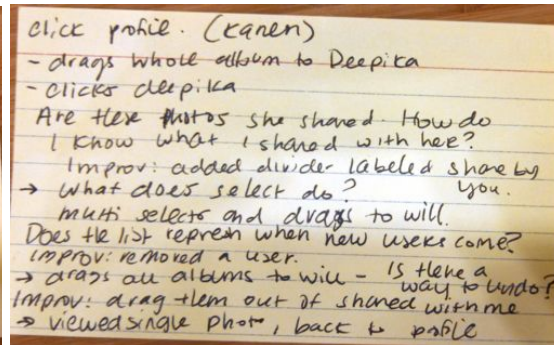 click profile. (Karen)
- drags whole album to Deepika
- clicks deepika
Are these photos she shared. How do
I know what I shared with her?
Improv: added divider labeled share by
you.
→ What does select do?
multi selects and drags to will.
Does the list refresh when new users come?
improv: removed a user.
→ drags all albums to will - Is there a
way to undo?
Improv: drag them out of shared with me
→ viewed single photo, back to profile